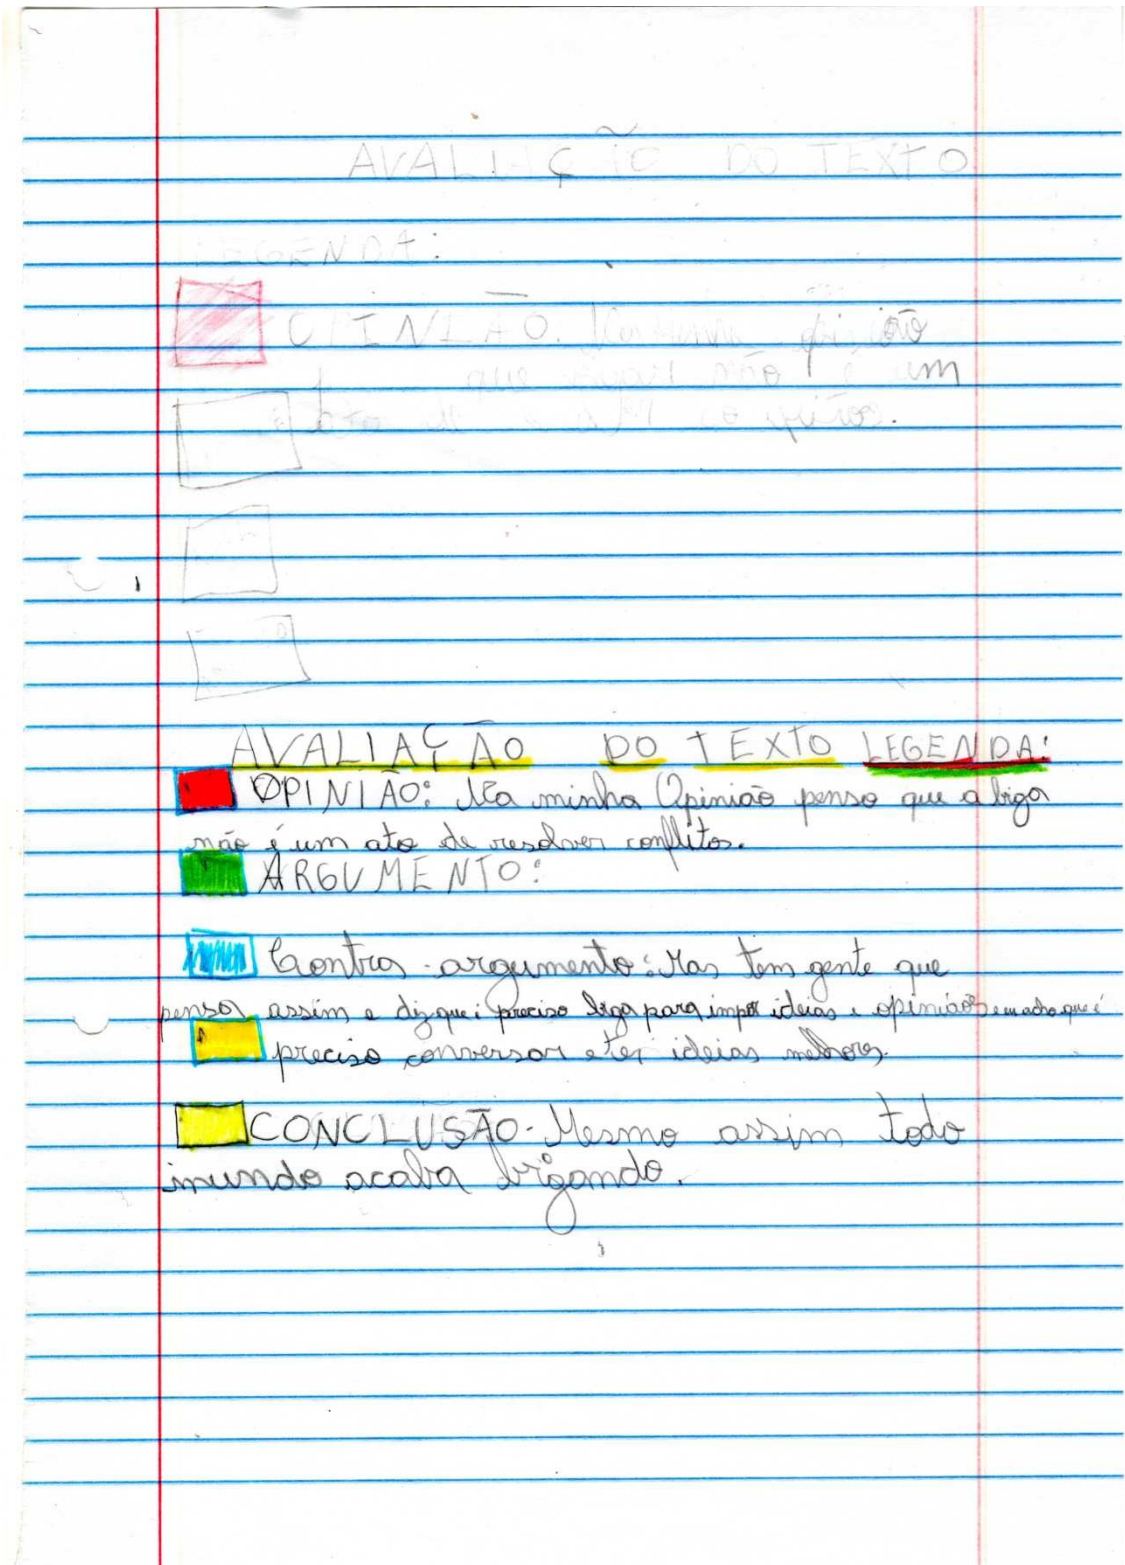 AVALIAÇÃO DO TEXTO
LEGENDA:
OPINIÃO. Na minha opinião
que não é um
AVALIAÇÃO DO TEXTO LEGENDA:
OPINIÃO: Na minha Opinião penso que a biga
não é um ato de resolver conflitos.
ARGUMENTO:
Contra-argumento: Mas tem gente que
pensa assim e diz que é preciso biga para impor ideias e opiniões eu acho que é
preciso conversar e ter ideias melhores.
CONCLUSÃO-Mesmo assim todo
mundo acaba brigando.